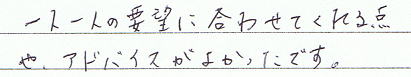 一人一人の要望に合わせてくれる点
や、アドバイスがよかったです。